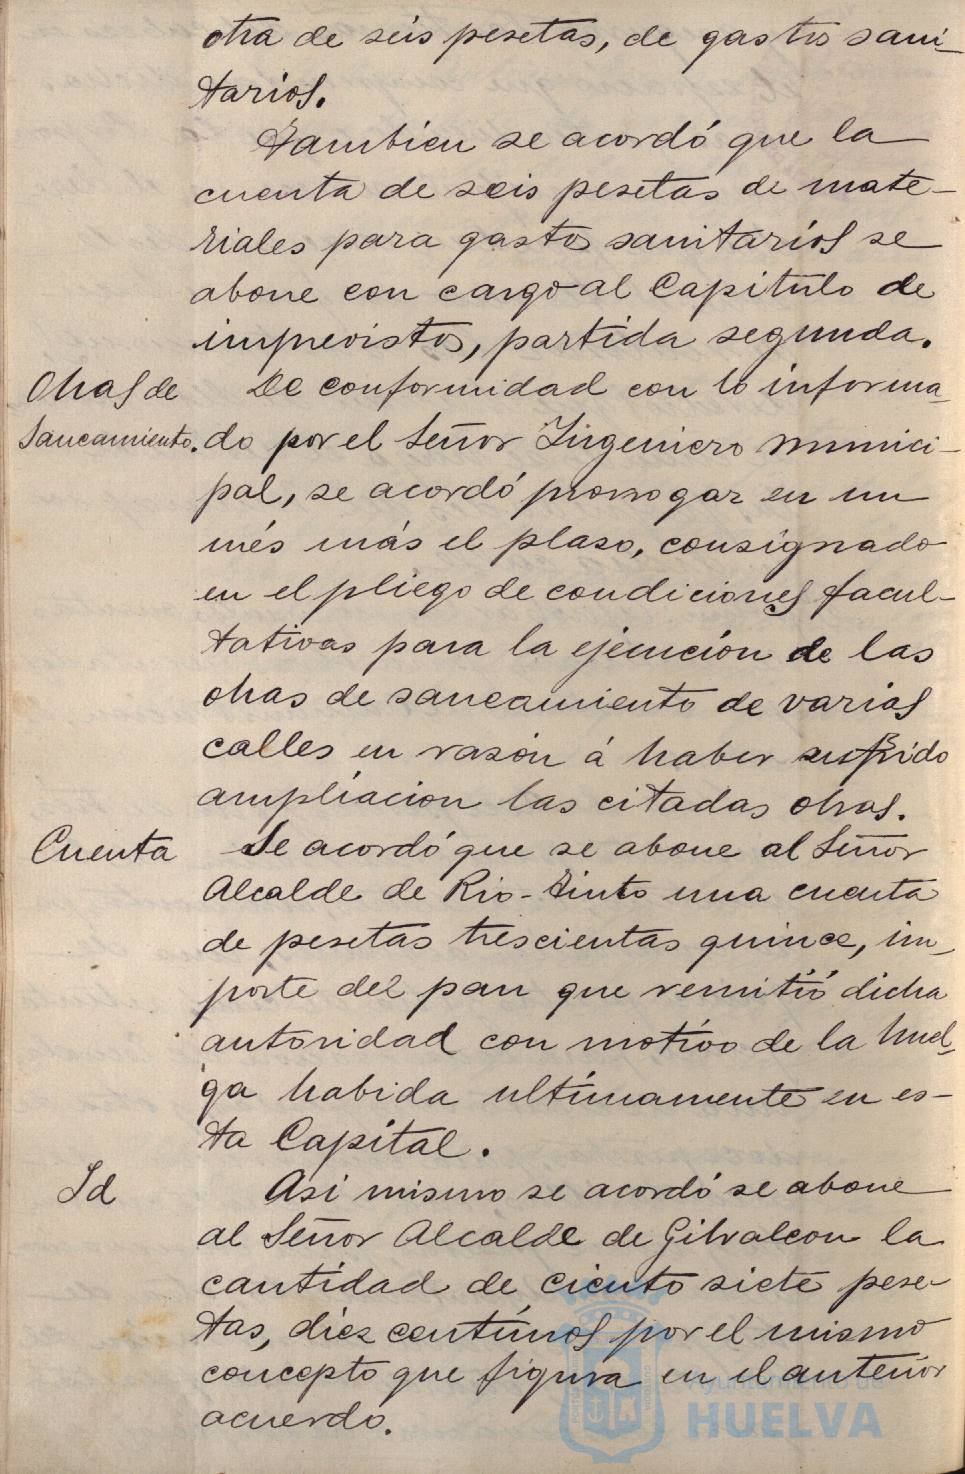 otra de seis pesetas, de gastos sani-
tarios.
Tambien se acordó que la
cuenta de seis pesetas de mate-
riales para gastos sanitarios se
abone con cargo al Capitulo de
imprevistos, partida segunda.
Obras de
Saneamiento.
De conformidad con lo informa-
do por el Señor Ingeniero munici-
pal, se acordó prorrogar en un
més más el plaso, consignado
en el pliego de condiciones facul-
tativas para la ejecución de las
obras de saneamiento de varias
calles en rasón á haber sufrido
ampliacion las citadas obras.
Cuenta
Se acordó que se abone al Señor
Alcalde de Rio-Tinto una cuenta
de pesetas trescientas quince, im-
porte del pan que remitió dicha
autoridad con motivo de la huel-
ga habida ultimamente en es-
ta Capital.
Id
Asi mismo se acordó se abone
al Señor Alcalde de Gibraleon la
cantidad de ciento siete pese-
tas, diez centimos por el mismo
concepto que figura en el anterior
acuerdo.
Ayuntamiento de
HUELVA